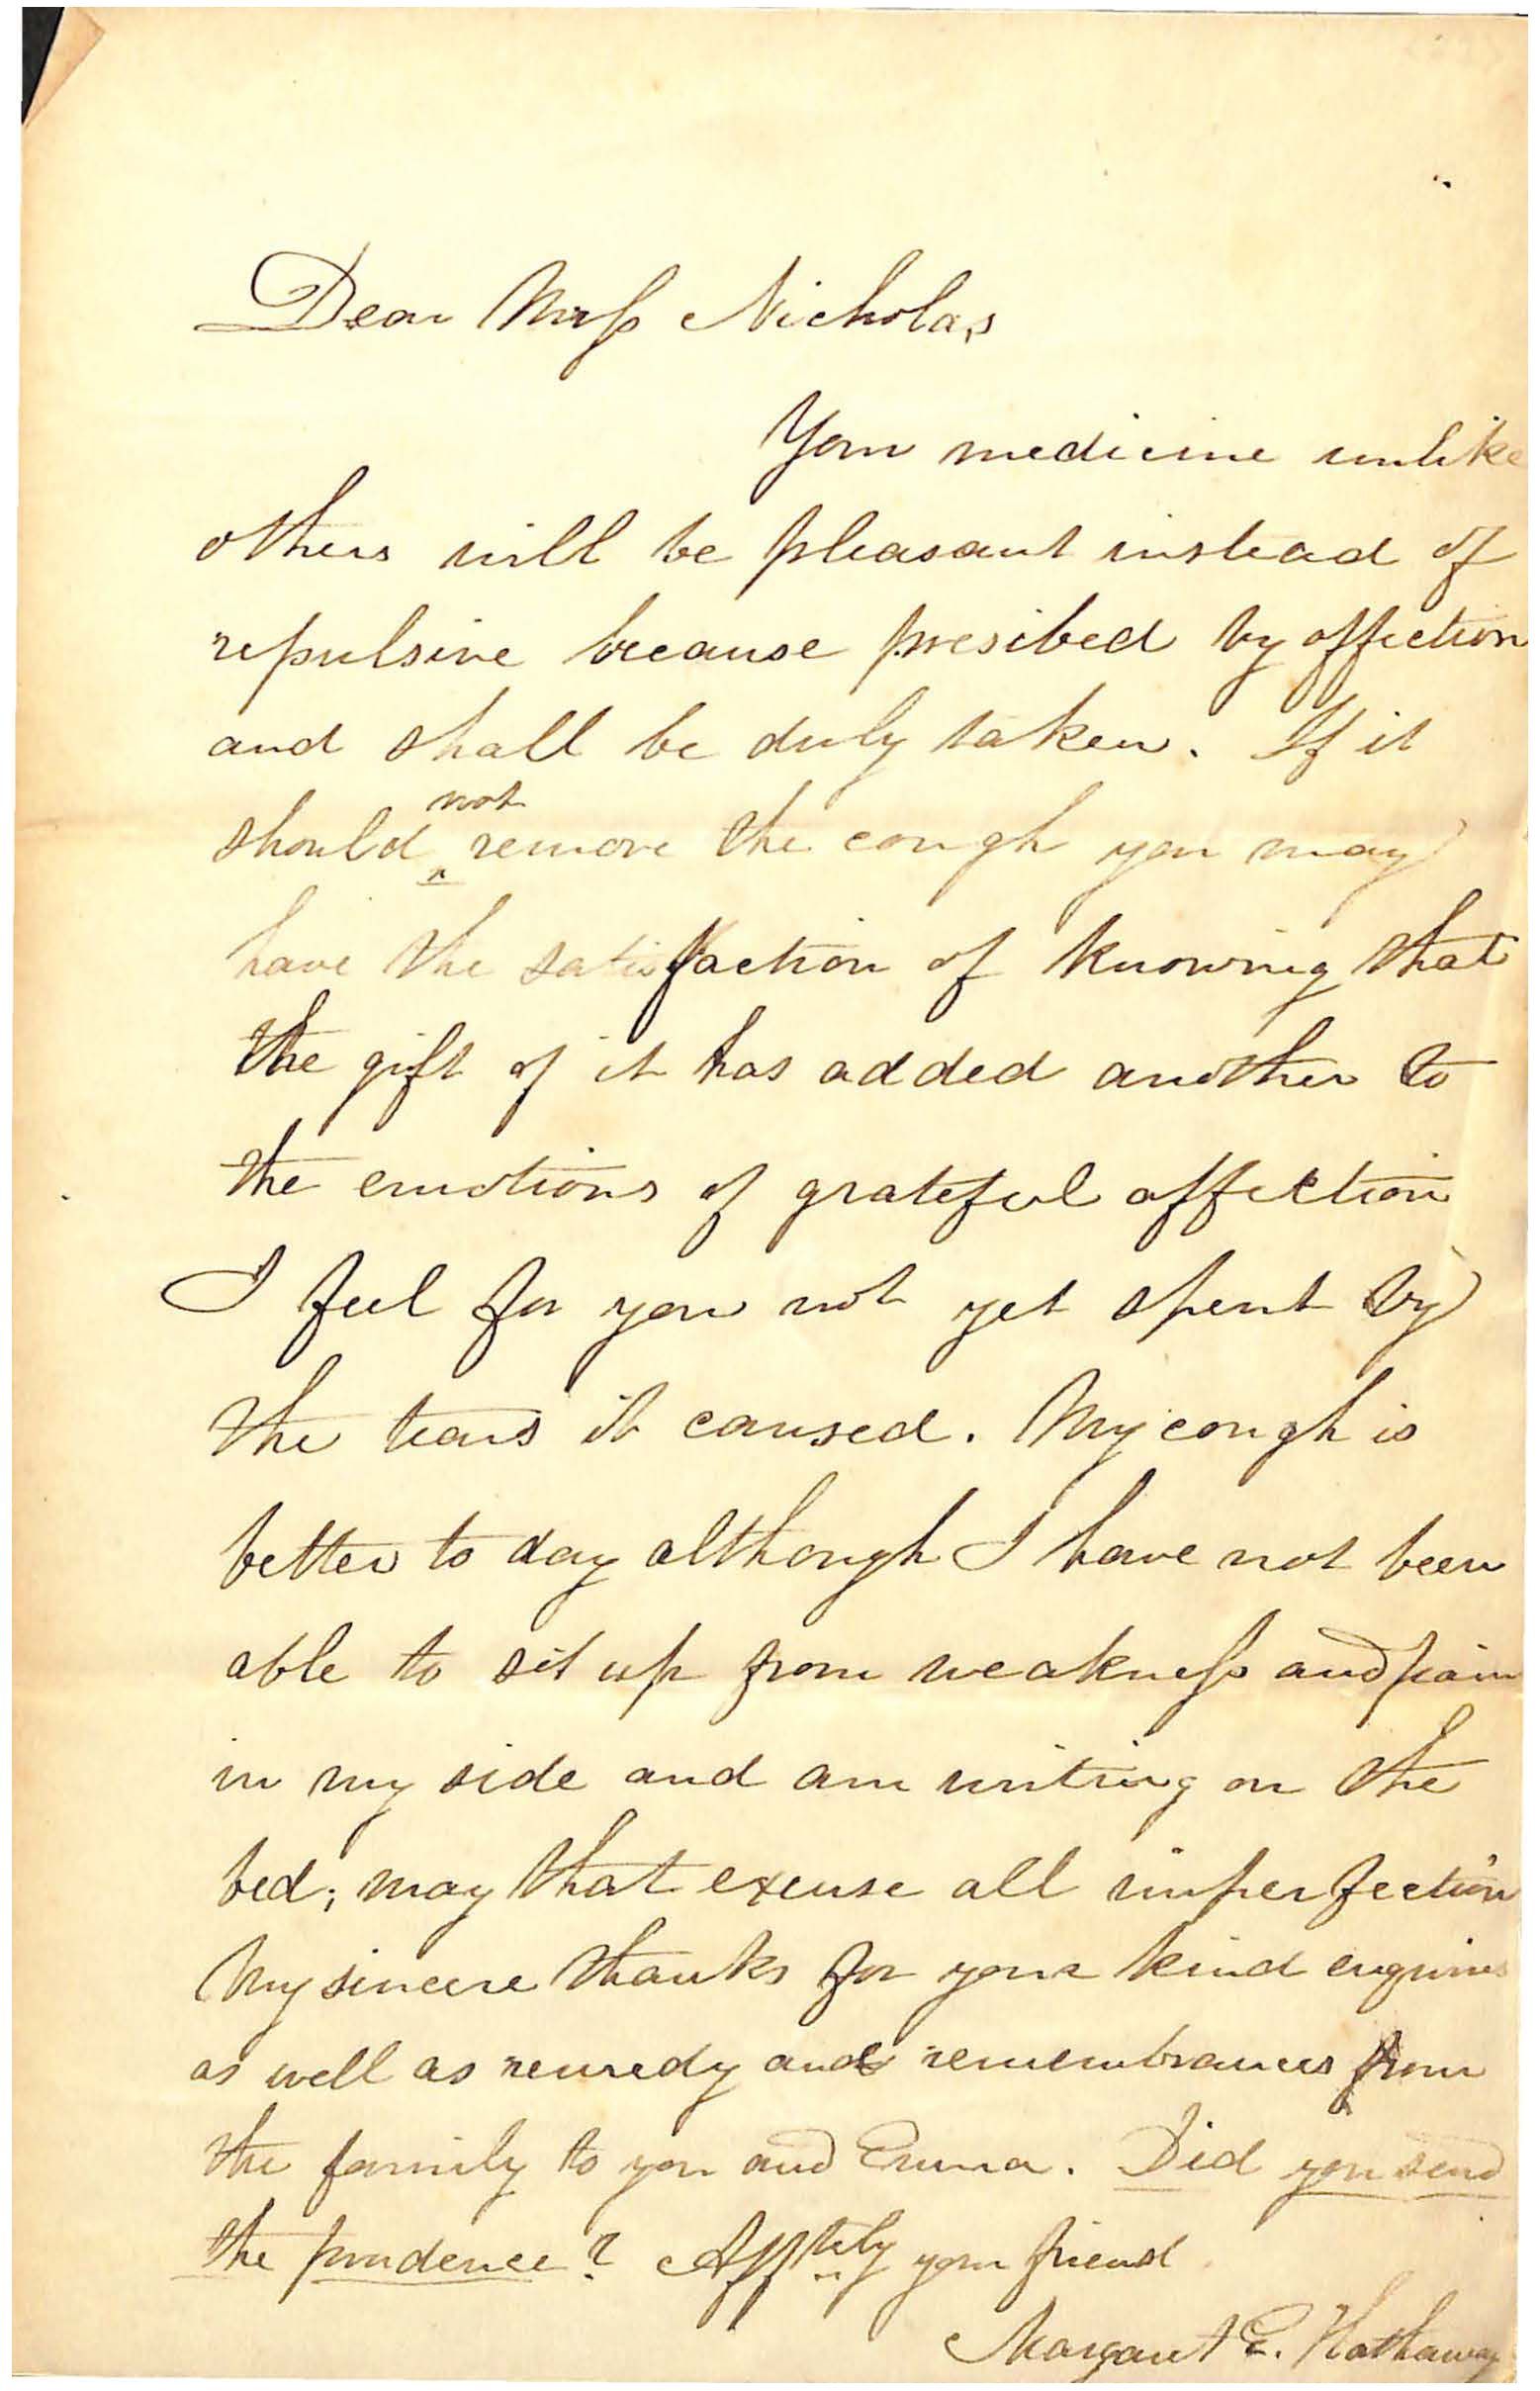 Dear Mrss Nicholas
Your medicine unlike
others will be pleasant instead of
repulsive because presibed by affection
and shall be duly taken. If it
should not remove the cough you may
have the satisfaction of knowing that
the gift of it has added another to
the emotions of grateful affection
I feel for you not yet spent by
the tears it caused. My cough is
better to day although I have not been
able to sit up from weakness and pain
in my side and am writing on the
bed; may that excuse all imperfection
My sincere thanks for your kind enquiries
as well as remedy and remembrances from
the family to you and Emma. Did you send
the prudence? Afftely your friend
Margaret E. Hathaway